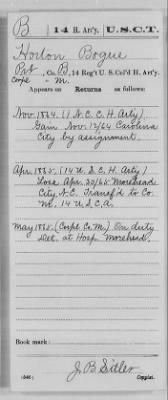 B | 14 H. Art'y. | U.S.C.T.
Horton Bogue
Pvt., Co. B, 14 Reg't U.S. Col'd H. Art'y.
Corpl " M.
Appears on Returns as follows:
Nov. 1864. (1 N.C.C.H. Arty)
Gain Nov. 12/64 Carolina
City by assignment.
Apr. 1865. (14 U.S.C.H. Arty)
Loss Apr. 30/65 Morehead
City, N.C. Transf'd to Co.
M. 14 U.S.C.A.
May 1865. (Corpl Co. M.) On duty
Det. at Hosp Morehead.
Book mark:
(546)
J. B. Sitler
Copyist.